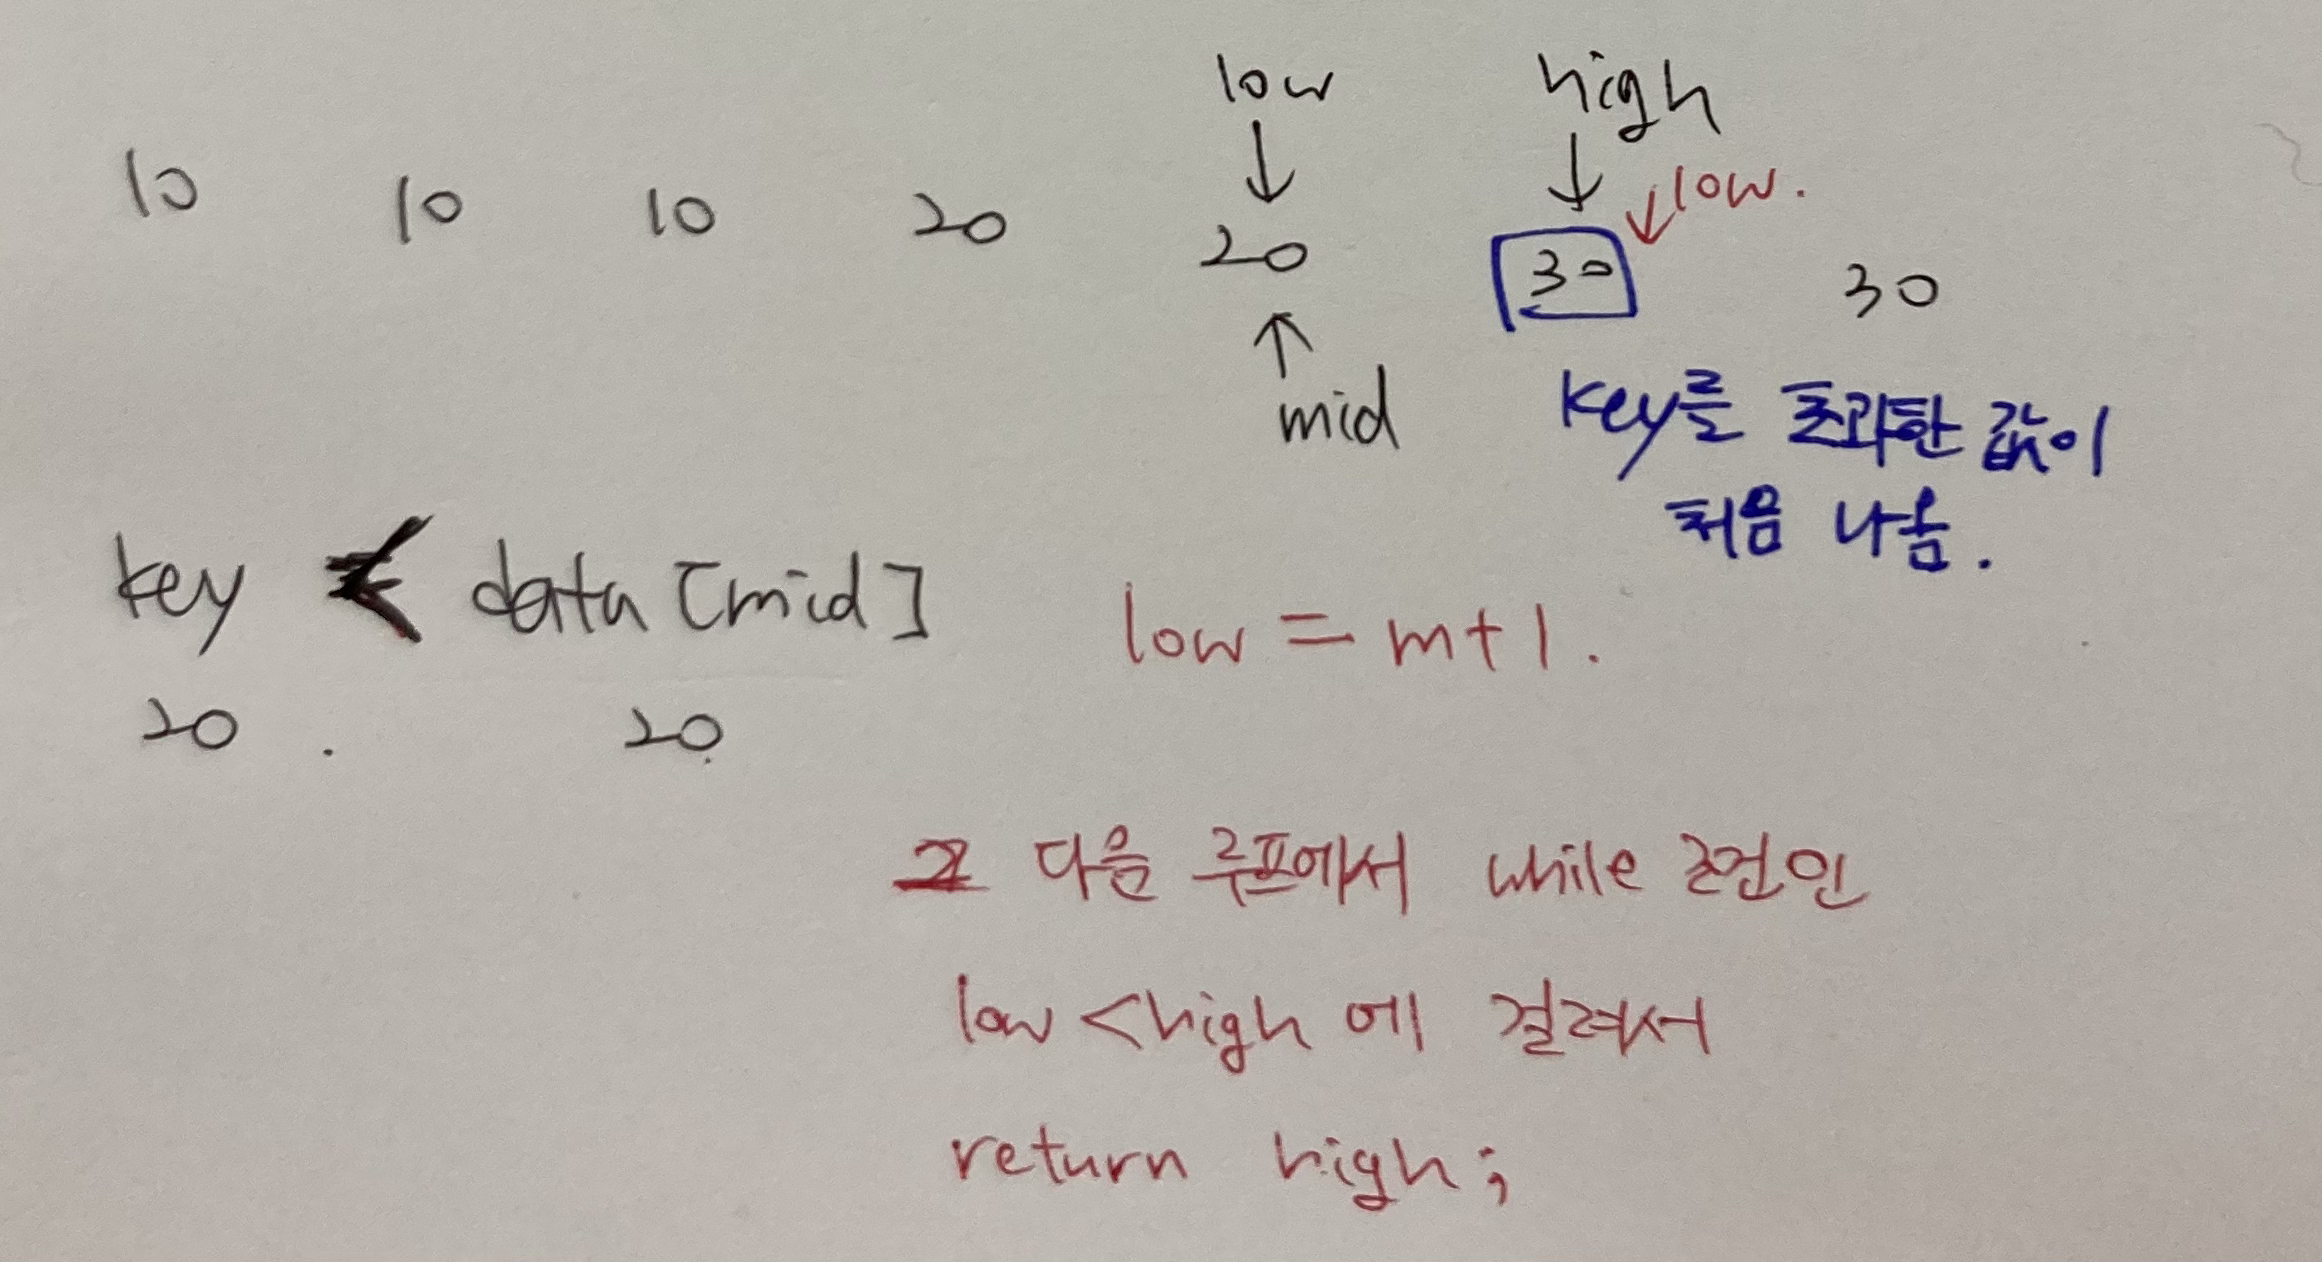 low high
10 10 10 20 20 30 30
low.
mid
key를 초과한 값이
처음 나옴.
key < data [mid]
low = m+1.
20 . 20
다음 루프에서 while 조건인
low < high 에 걸려서
return high;